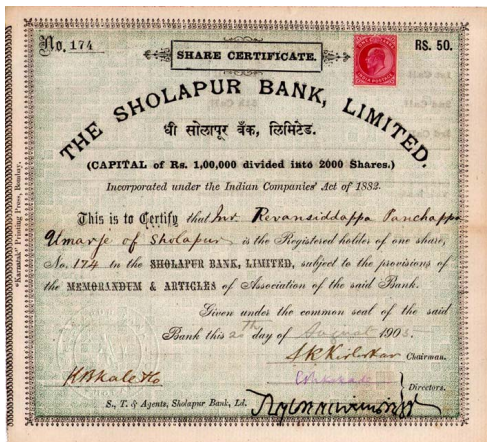 No. 174
SHARE CERTIFICATE.
RS. 50.
THE SHOLAPUR BANK, LIMITED.
धी सोलापूर बँक, लिमिटेड.
(CAPITAL of Rs. 1,00,000 divided into 2000 Shares.)
Incorporated under the Indian Companies' Act of 1882.
This is to Certify that Mr. Revansiddappa Panchappa
Umarje of Sholapur is the Registered holder of one share,
No. 174 in the SHOLAPUR BANK, LIMITED, subject to the provisions of
the MEMORANDUM & ARTICLES of Association of the said Bank.
Given under the common seal of the said
Bank this 20th day of August 190
Chairman.
Directors.
S., T. & Agents, Sholapur Bank, Ld.
"Karnatak" Printing Press, Bombay.